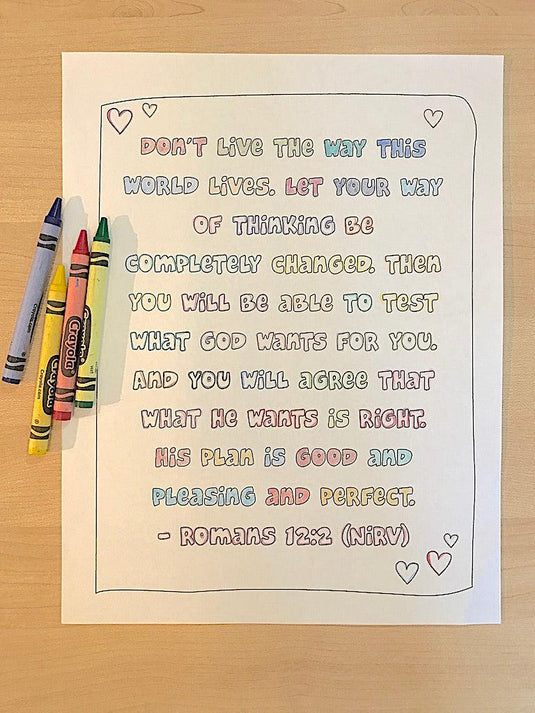 Don't live the way this
world lives. Let your way
of thinking be
completely changed. Then
you will be able to test
what God wants for you.
And you will agree that
what He wants is right.
His plan is good and
pleasing and perfect.
- Romans 12:2 (NIRV)
Crayola
Crayola